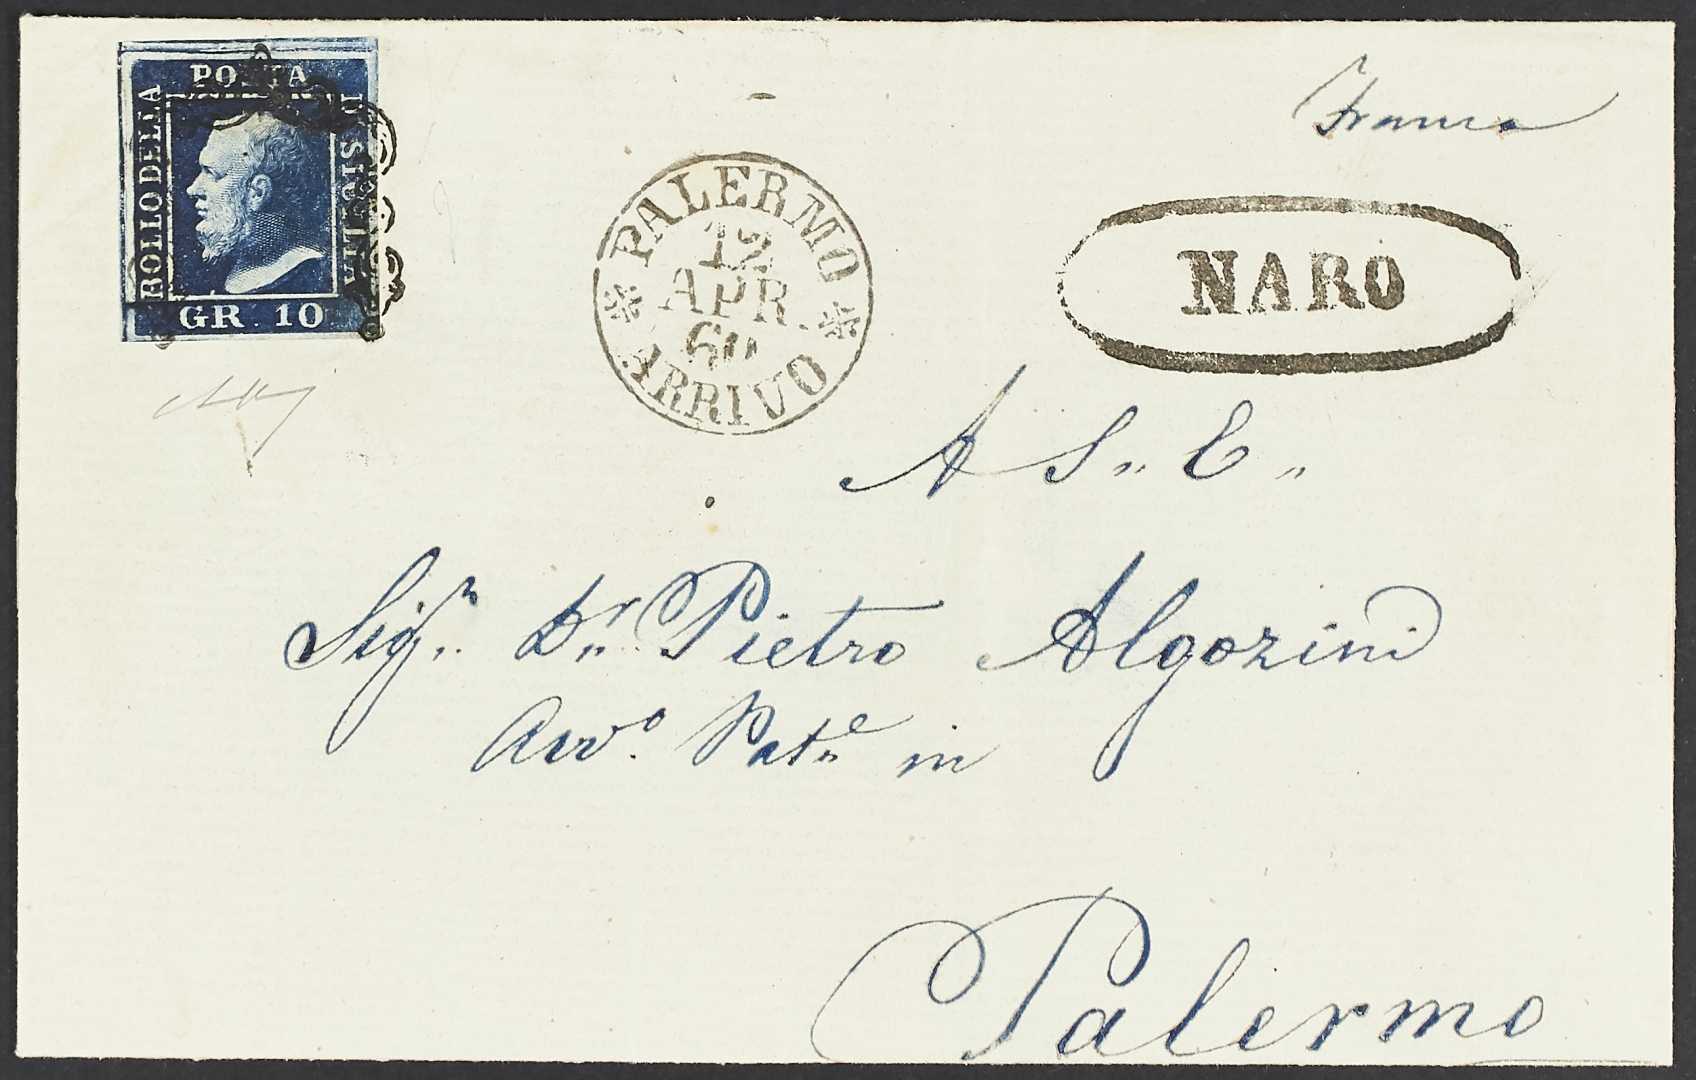 POSTA
BOLLO DELLA
DI SICILIA
GR. 10
PALERMO
12
APR.
60
ARRIVO
Franca
NARO
A S.. E..
Sigr.. Dr.. Pietro Algozini
Avvo. Pate.. in
Palermo